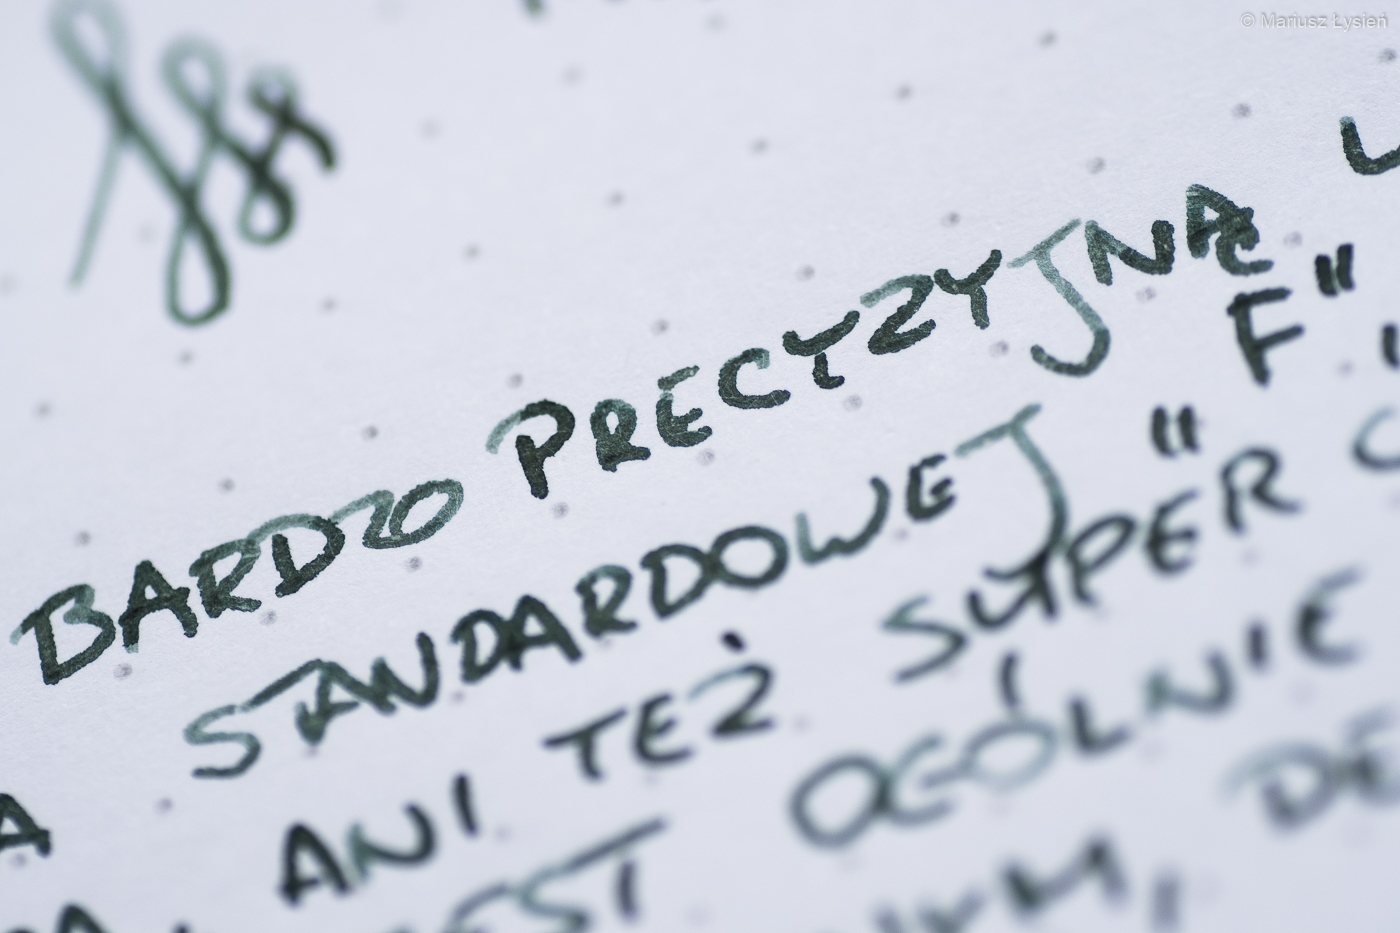 © Mariusz Łysień
BARDZO PRECYZYJNĄ
STANDARDOWEJ „F"
ANI TEŻ SUPER
JEST OGÓLNIE